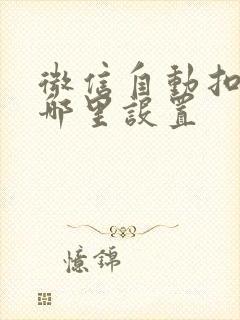 微信自動扣
哪里設置
憶錦